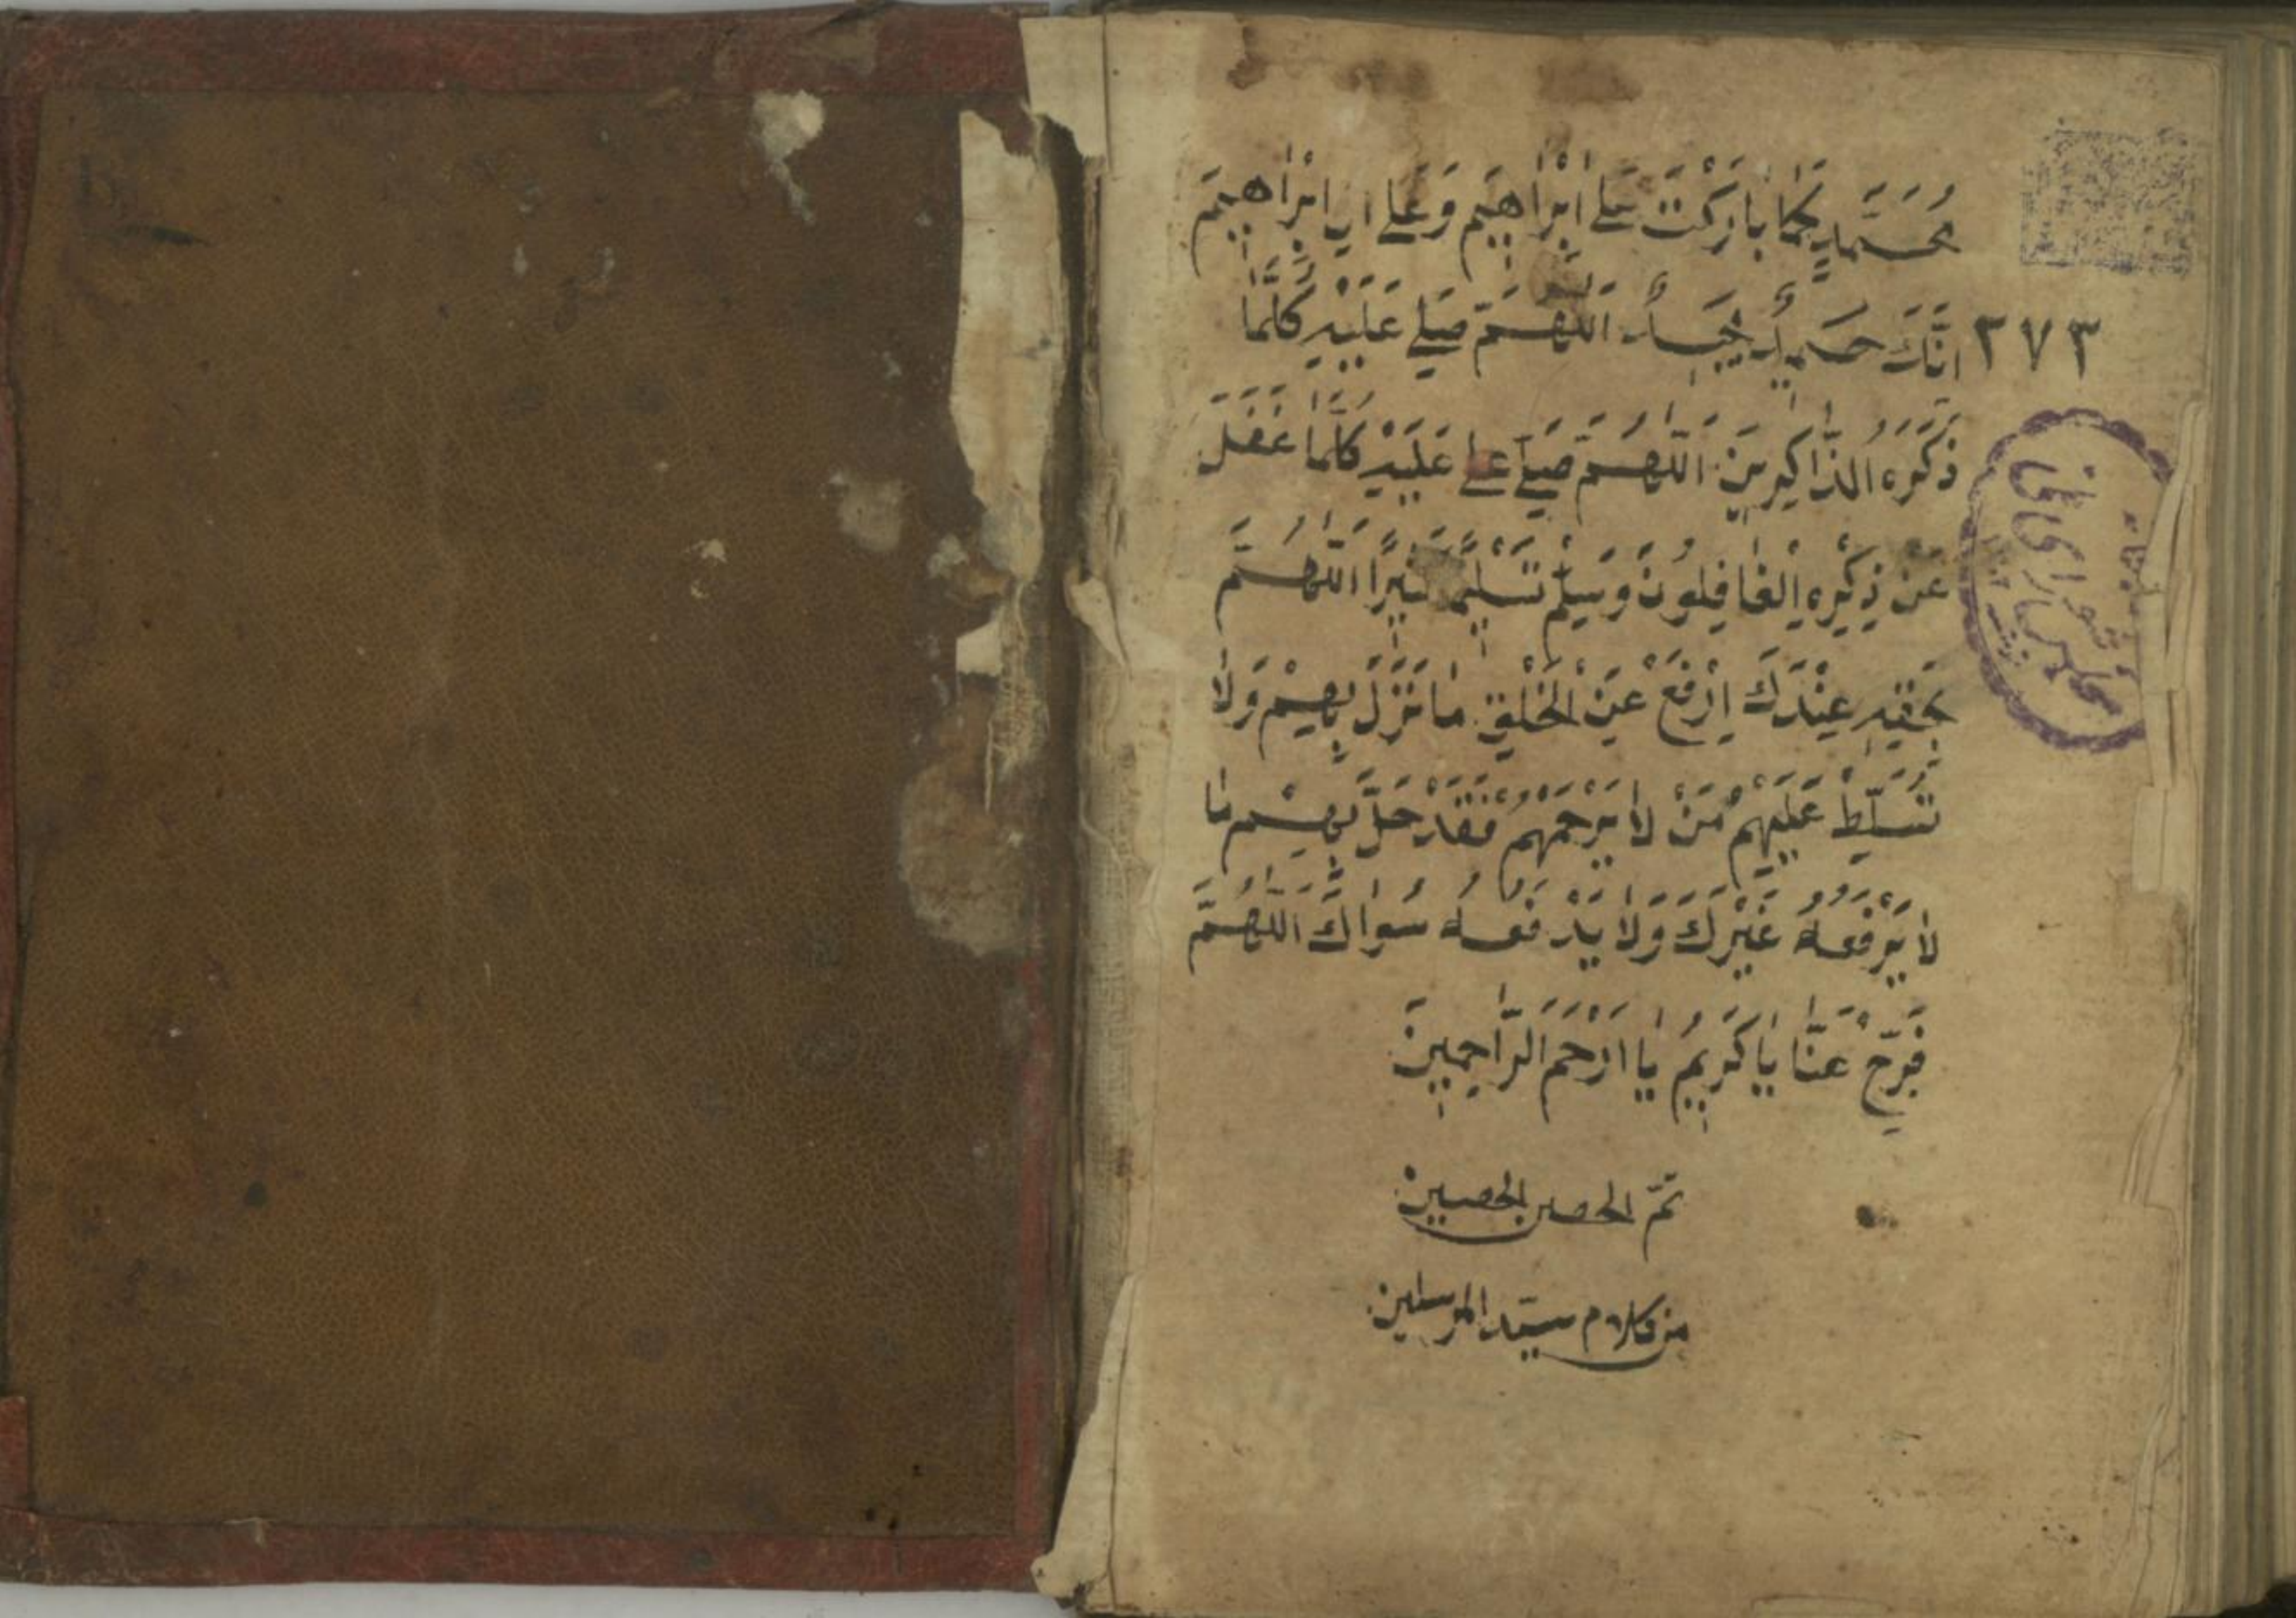 مُحَمَّدٍ كَمَا بَارَكْتَ عَلَى اِبْرَاهِيمَ وَعَلَى الِ اِبْرَاهِيمَ
اِنَّكَ حَمِيدٌ مَجِيدٌ اَللّٰهُمَّ صَلِّ عَلَيْهِ كُلَّمَا
٣٧٣
ذَكَرَهُ الذَّاكِرِينَ اَللّٰهُمَّ صَلِّ على عَلَيْهِ كُلَّمَا غَفَلَ
عَنْ ذِكْرِهِ الْغَافِلُونَ وَسَلِّمْ تَسْلِيمًا كَثِيرًا اَللّٰهُمَّ
بِحَقِّهِ عِنْدَكَ اِرْفَعْ عَنِ الْخَلْقِ مَا نَزَلَ بِهِمْ وَلَا
تُسَلِّطْ عَلَيْهِمْ مَنْ لَا يَرْحَمُهُمْ فَقَدْ حَلَّ بِهِمْ مَا
لَا يَرْفَعُهُ غَيْرُكَ وَلَا يَدْفَعُهُ سُوَاكَ اَللّٰهُمَّ
فَرِّجْ عَنَّا يَا كَرِيمُ يَا اَرْحَمَ الرَّاحِمِينَ
تمّ الحصن الحصين
من كلام سيّد المرسلين
مجلس شورای ملی